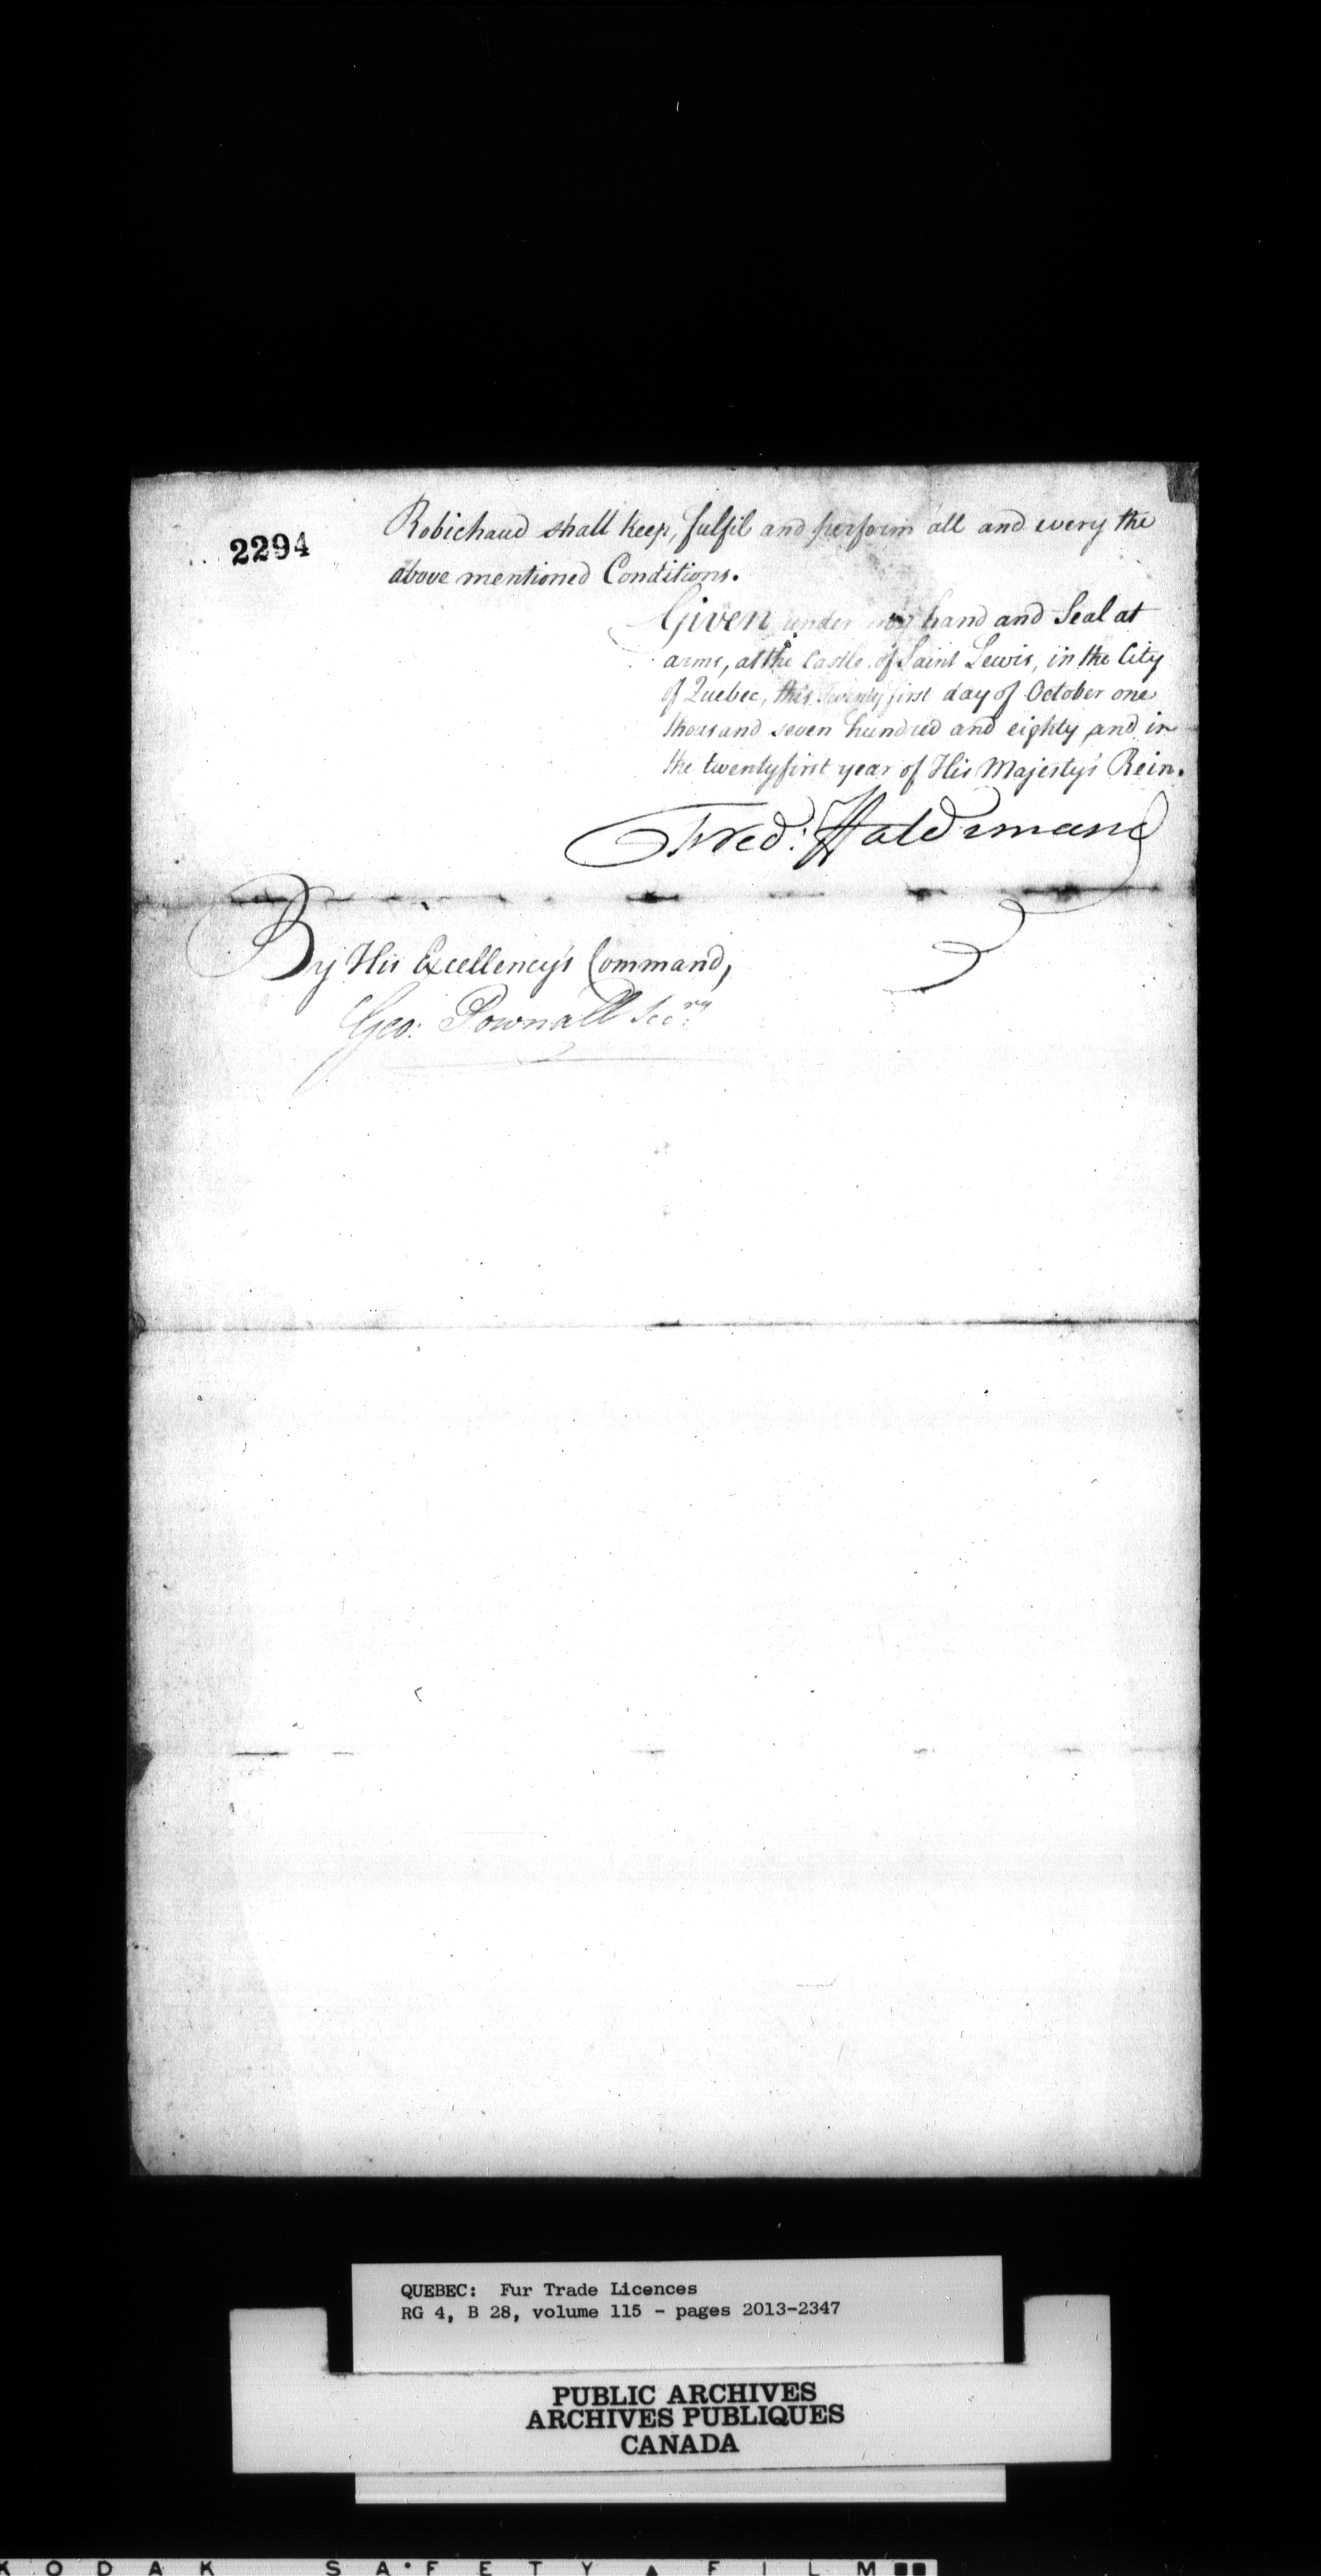 2294
Robichaud shall keep, fulfil and perform all and every the
above mentioned Conditions.
Given under my hand and Seal at
arms, at the Castle of Saint Lewis, in the City
of Quebec, this twenty first day of October one
thousand seven hundred and eighty and in
the twentyfirst year of His Majesty's Rein.
Fred: Haldimand
By His Excellency's Command,
Geo: Pownall Secry
QUEBEC: Fur Trade Licences
RG 4, B 28, volume 115 - pages 2013-2347
PUBLIC ARCHIVES
ARCHIVES PUBLIQUES
CANADA
KODAK SAFETY FILM